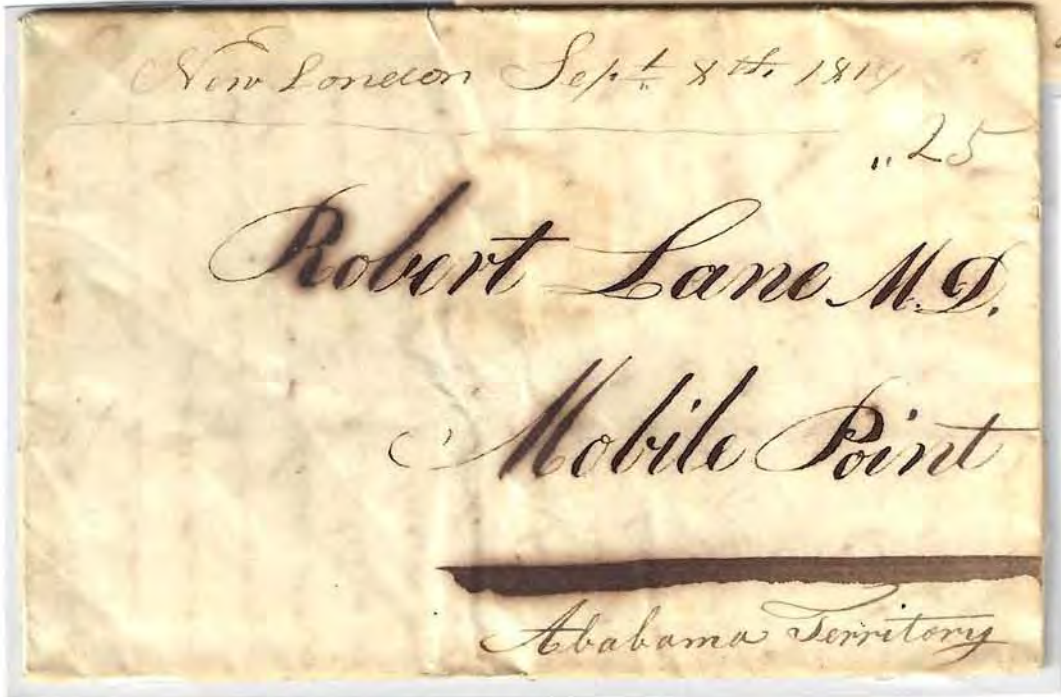 New London Sept. 8th, 1819
„ 25
Robert Lane M.D.
Mobile Point
Ababama Territory